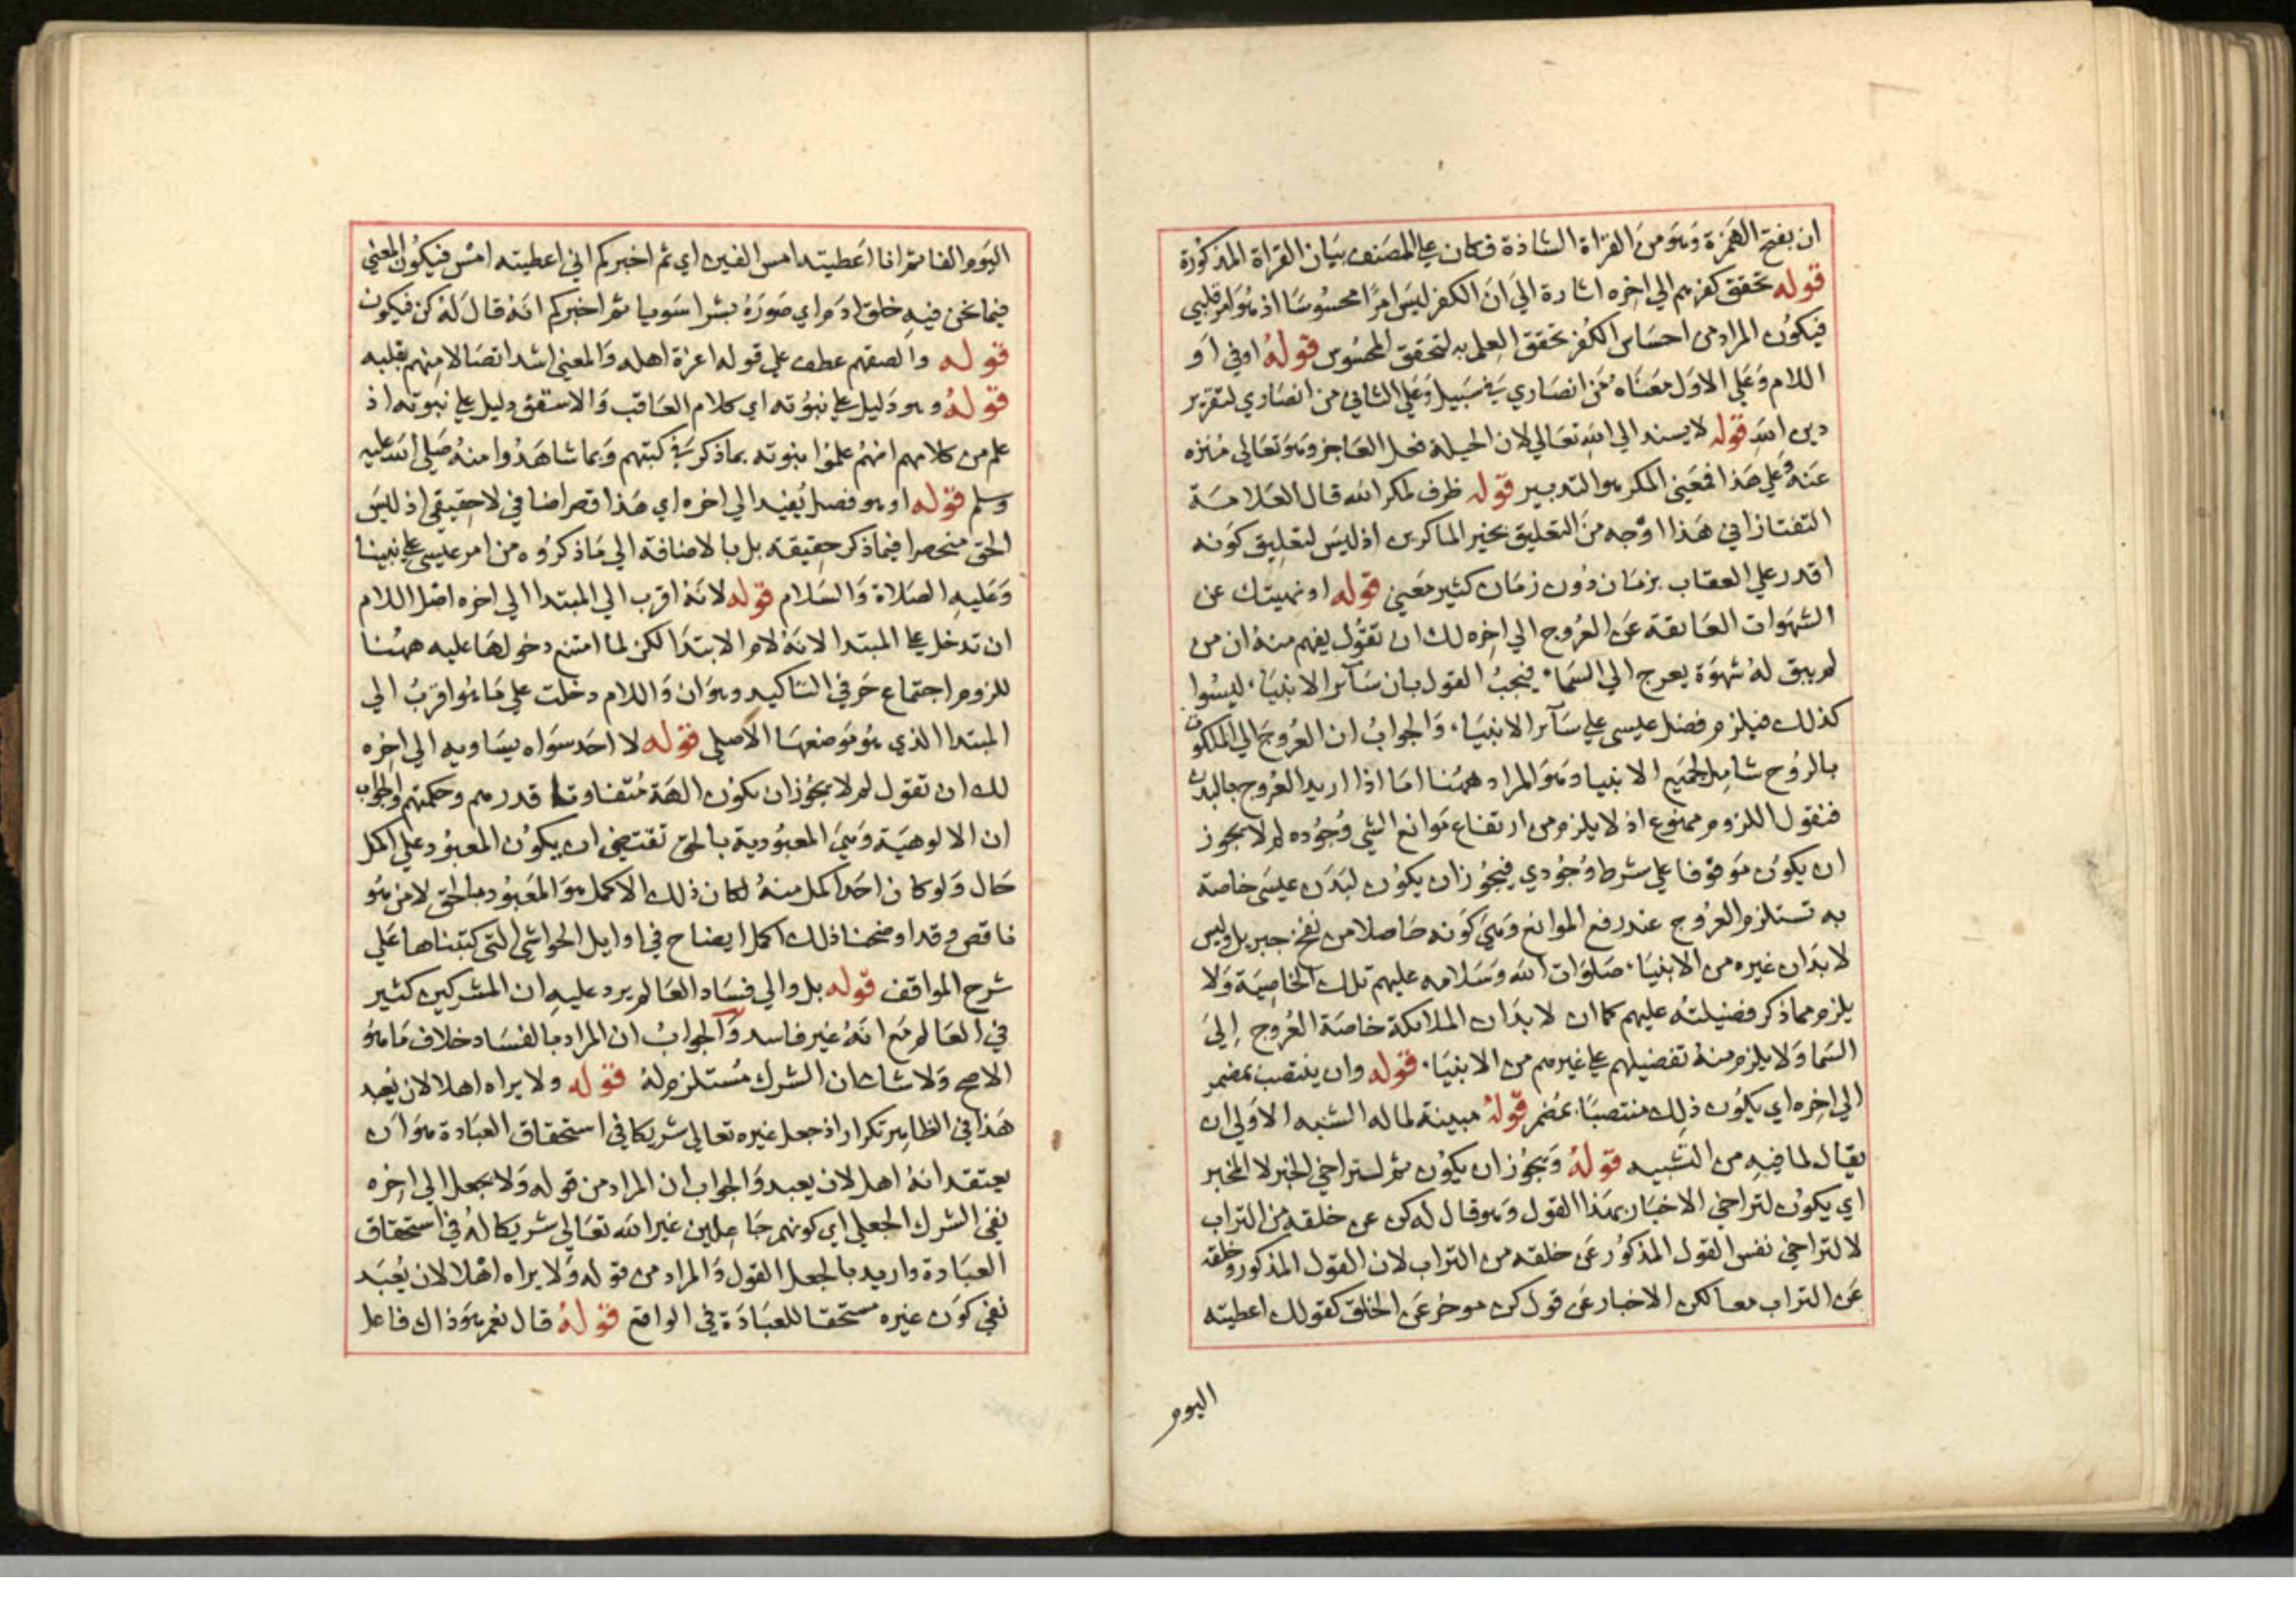 ان بفتح الهمزة وهو من القراة الشاذة فكان على المصنف بيان القراة المذكورة
قوله تحقق كفرهم الى اخره اشارة الى ان الكفر ليس امرا محسوسا اذ هو امر قلبي
فيكون المراد من احساس الكفر تحقق العلم به لتحقق المحسوس قوله او في او
اللام وعلى الاول معناه من انصاري في سبيل وعلى الثاني من انصاري لتقرير
دين الله قوله لا يسند الى الله تعالى لان الحيلة فعل العاجز وهو تعالى منزه
عنه وعلى هذا فمعنى المكر هو التدبير قوله ظرف لمكر الله قال العلامة
التفتازاني هذا اوجه من التعليق بخير الماكرين اذ ليس لتعليق كونه
اقدر على العقاب بزمان دون زمان كثير معنى قوله او نميتك عن
الشهوات العايقة عن العروج الى اخره لك ان تقول يفهم منه ان من
لم يبق له شهوة يعرج الى السماء فيجب القول بان سآئر الانبياء ليسوا
كذلك فيلزم فضل عيسى على سآئر الانبياء والجواب ان العروج الى الملكوت
بالروح شامل لجميع الانبيا وهو المراد ههنا اما اذا اريد العروج بالبدن
فنقول اللزوم ممنوع اذ لا يلزم من ارتفاع موانع الشي وجوده لم لا يجوز
ان يكون موقوفا على شرط وجودي فيجوز ان يكون لبدن عيسى خاصة
به تستلزم العروج عند رفع الموانع وهي كونه حاصلا من نفخ جبريل وليس
لابدان غيره من الانبياء صلوات الله وسلامه عليهم تلك الخاصية ولا
يلزم مما ذكر فضيلته عليهم كما ان لابدان الملائكة خاصة العروج إلى
السما ولا يلزم منه تفضيلهم على غيرهم من الانبياء قوله وان ينتصب بمضمر
الى اخره اي يكون ذلك منتصبا بمضمر قوله مبينة لما له الشبه الاولى ان
يقال لما فيه من التشبيه قوله ويجوز ان يكون ثم لتراخي الخبر لا المخبر
اي يكون لتراخي الاخبار بهذا القول وهو قال له كن عن خلقه من التراب
لا لتراخي نفس القول المذكور عن خلقه من التراب لان القول المذكور وخلقه
عن التراب معا لكن الاخبار عن قول كن موخر عن الخلق كقولك اعطيته
اليوم
اليوم الفا ثم انا اعطيته امس الفين اي ثم اخبركم اني اعطيته امس فيكون المعنى
فيما نحن فيه خلق ادم اي صوره بشرا سويا ثم اخبركم انه قال له كن فيكون
قوله والصقهم عطف على قوله اعزة اهله والمعنى اشد اتصالا منهم بقلبه
قوله وهو دليل على نبوته اي كلام العاقب والاسقف دليل على نبوته اذ
علم من كلامهم انهم علموا نبوته بما ذكر في كتبهم وبما شاهدوا منه صلى الله عليه
وسلم قوله او هو فصل يفيد الى اخره اي هذا قصر اضافي لا حقيقي اذ ليس
الحق منحصرا فيما ذكر حقيقة بل بالاضافة الى ما ذكروه من امر عيسى على نبينا
وعليه الصلاة والسلام قوله لانه اقرب الى المبتدا الى اخره اصل اللام
ان تدخل على المبتدا لانه لام الابتدا لكن لما امتنع دخولها عليه ههنا
للزوم اجتماع حرفي التاكيد وهو ان واللام دخلت على ما هو اقرب الى
المبتدا الذي هو موضعها الاصلي قوله لا احد سواه يساويه الى اخره
لك ان تقول لم لا يجوز ان يكون الهة متفاوتا قدرهم وحكمتهم والجواب
ان الالوهية وهي المعبودية بالحق تقتضي ان يكون المعبود على اكمل
حال ولو كان احد اكمل منه لكان ذلك الاكمل هو المعبود بالحق لا من هو
ناقص وقد اوضحنا ذلك اكمل ايضاح في اوايل الحواشي التي كتبناها على
شرح المواقف قوله بل والى فساد العالم يرد عليه ان المشركين كثير
في العالم مع انه غير فاسد والجواب ان المراد بالفساد خلاف ما هو
الاصح ولا شك ان الشرك مستلزم له قوله ولا يراه اهلا لان يعبد
هذا في الظاهر تكرار اذ جعل غيره تعالى شريكا في استحقاق العبادة هو ان
يعتقد انه اهل لان يعبد والجواب ان المراد من قوله ولا يجعل الى اخره
نفي الشرك الجعلي اي كونهم جاعلين غير الله تعالى شريكا له في استحقاق
العبادة واريد بالجعل القول والمراد من قوله ولا يراه اهلا لان يعبد
نفي كون غيره مستحقا للعبادة في الواقع قوله قال نعم هو ذاك فاعل